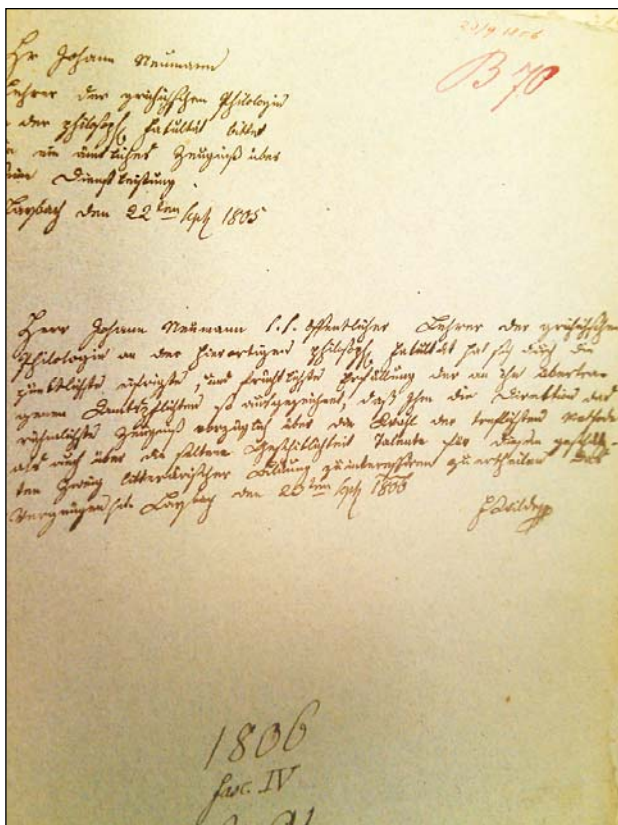 23/9 1806
B 70
Hr Johann Neumann
Lehrer der griechischen Philologie
der philosoph. Fakultät bittet
um ein ämtliches Zeugniß über
seine Dienstleistung.
Laybach den 22ten Sept 1805
Herr Johann Neumann k. k. öffentlicher Lehrer der griechischen
Philologie an der hierortigen philosoph. Fakultät hat sich durch die
pünktlichste eifrigste, und fruchtlichste Erfüllung der an ihn übertra-
genen Amtspflichten so ausgezeichnet, daß ihm die Direktion das
rühmlichste Zeugniß vorzüglich über die Wahl der trefflichsten Methode
als auch über die seltene Geschiklichkeit Talente für diesen geschätz-
ten Zweig litterärischer Bildung zu interessiren zu ertheilen das
Vergnügen hat. Laybach den 23ten Sept 1806
1806
fasc. IV